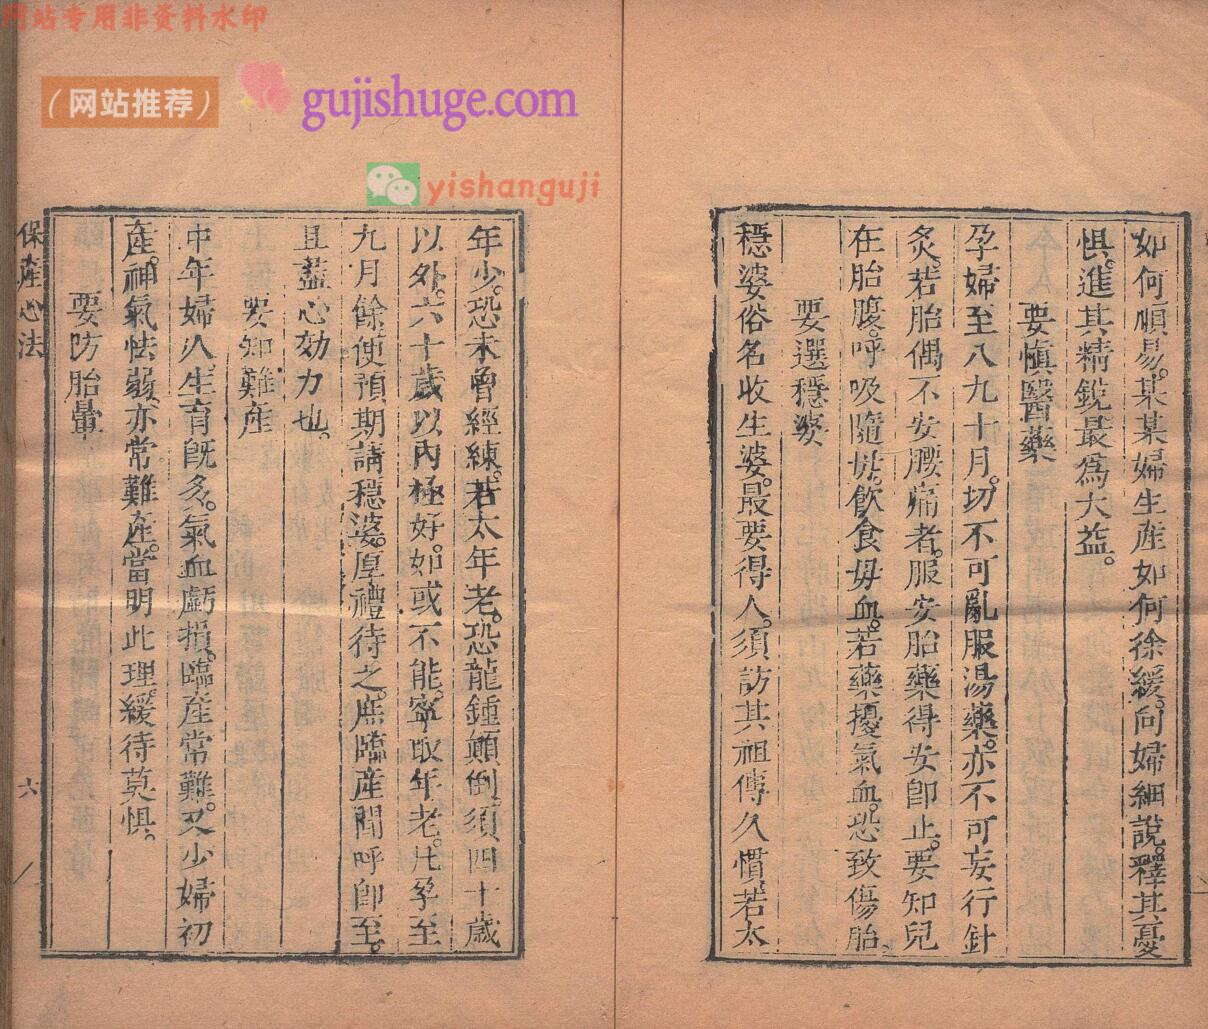 网站专用非资料水印
（网站推荐）
gujishuge.com
yishanguji
如何順易。某某婦生産如何徐緩。向婦細說。釋其憂
惧。進其精銳。最爲大益。
要慎醫藥
孕婦至八九十月。切不可亂服湯藥。亦不可妄行針
灸。若胎偶不安腰痛者。服安胎藥得安卽止。要知兒
在胎腹。呼吸隨母。飲食母血。若藥擾氣血。恐致傷胎
要選穩婆
穩婆俗名收生婆。最要得人。須訪其祖傳久慣。若太
年少。恐未曾經練。若太年老。恐龍鍾顛倒。須四十歲
以外。六十歲以內極好。如或不能。寧取年老。凡孕至
九月餘。使預期請穩婆。厚禮待之。庶臨産聞呼卽至。
且盡心効力也。
要知難産
中年婦人。生育旣多。氣血虧損。臨産常難。又少婦初
産。神氣怯弱。亦常難産。當明此理。緩待莫惧。
要防胎暈
保産心法
六